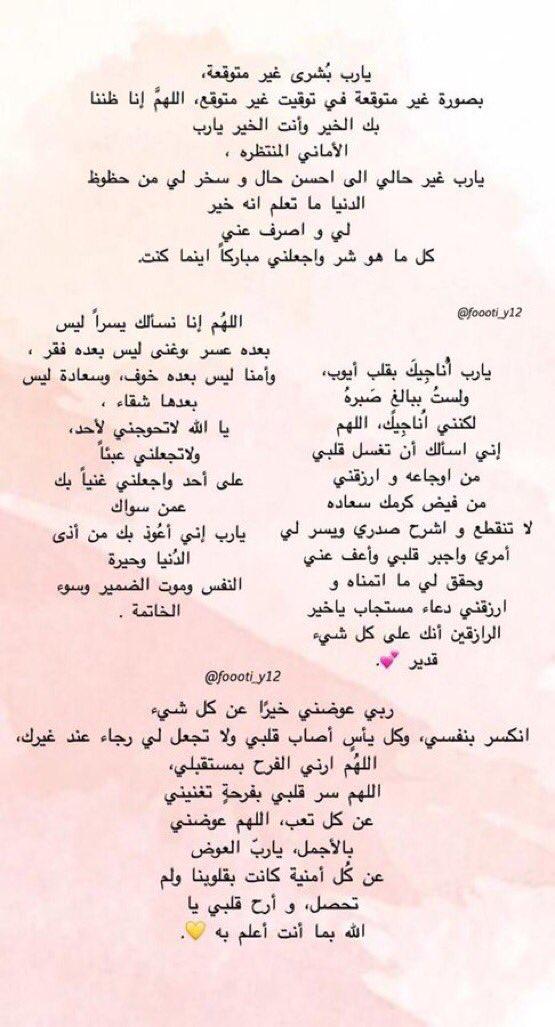 يارب بُشرى غير متوقعة،
بصورة غير متوقعة في توقيت غير متوقع، اللهمَّ إنا ظننا
بك الخير وأنت الخير يارب
الأماني المنتظره ،
يارب غير حالي الى احسن حال و سخر لي من حظوظ
الدنيا ما تعلم انه خير
لي و اصرف عني
كل ما هو شر واجعلني مباركاً اينما كنت.
@foooti_y12
يارب أُناجِيكَ بقلب أيوب،
ولستُ ببالغِ صَبرهُ
لكنني اُناجِيكَ، اللهم
إني اسألك أن تغسل قلبي
من اوجاعه و ارزقني
من فيض كرمك سعاده
لا تنقطع و اشرح صدري ويسر لي
أمري واجبر قلبي وأعف عني
وحقق لي ما اتمناه و
ارزقني دعاء مستجاب ياخير
الرازقين أنك على كل شيء
قدير 💕.
اللهُم إنا نسألك يسراً ليس
بعده عسر ،وغنى ليس بعده فقر ،
وأمنا ليس بعده خوف، وسعادة ليس
بعدها شقاء ،
يا الله لاتحوجني لأحد،
ولاتجعلني عبئاً
على أحد واجعلني غنياً بك
عمن سواك
يارب إني أعُوذ بك من أذى
الدُنيا وحيرة
النفس وموت الضمير وسوء
الخاتمة .
@foooti_y12
ربي عوضني خيرًا عن كل شيء
انكسر بنفسي، وكل يأسٍ أصاب قلبي ولا تجعل لي رجاء عند غيرك،
اللهُم ارني الفرح بمستقبلي،
اللهم سر قلبي بفرحةٍ تغنيني
عن كل تعب، اللهم عوضني
بالأجمل، ياربّ العوض
عن كُل أمنية كانت بقلوبنا ولم
تحصل، و أرح قلبي يا
الله بما أنت أعلم به 💛.